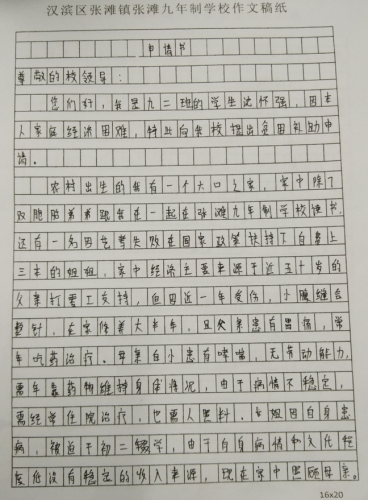 汉滨区张滩镇张滩九年制学校作文稿纸
申请书
尊敬的校领导:
您们好,我是九二班的学生沈怀强,因本
人家庭经济困难,特此向贵校提出贫困补助申
请。
农村出生的我有一个大口之家,家中除了
双胞胎弟弟跟我在一起在张滩九年制学校读书,
还有一名因高考失败在国家政策扶持下自费上
三本的姐姐,家中经济主要来源于近五十岁的
父亲打零工支持,但因近一年受伤,小腿缝合
整针,在家修养大半年,且父亲患有胃病,常
年吃药治疗。母亲自小患有哮喘,无劳动能力,
需年靠药物维持身体情况,由于病情不稳定,
需经常住院治疗,也需人照料,女姐因自身患
病,被迫于初二辍学,由于自身病情和文化程
度低没有稳定的收入来源,现在家中照顾母亲。
16x20